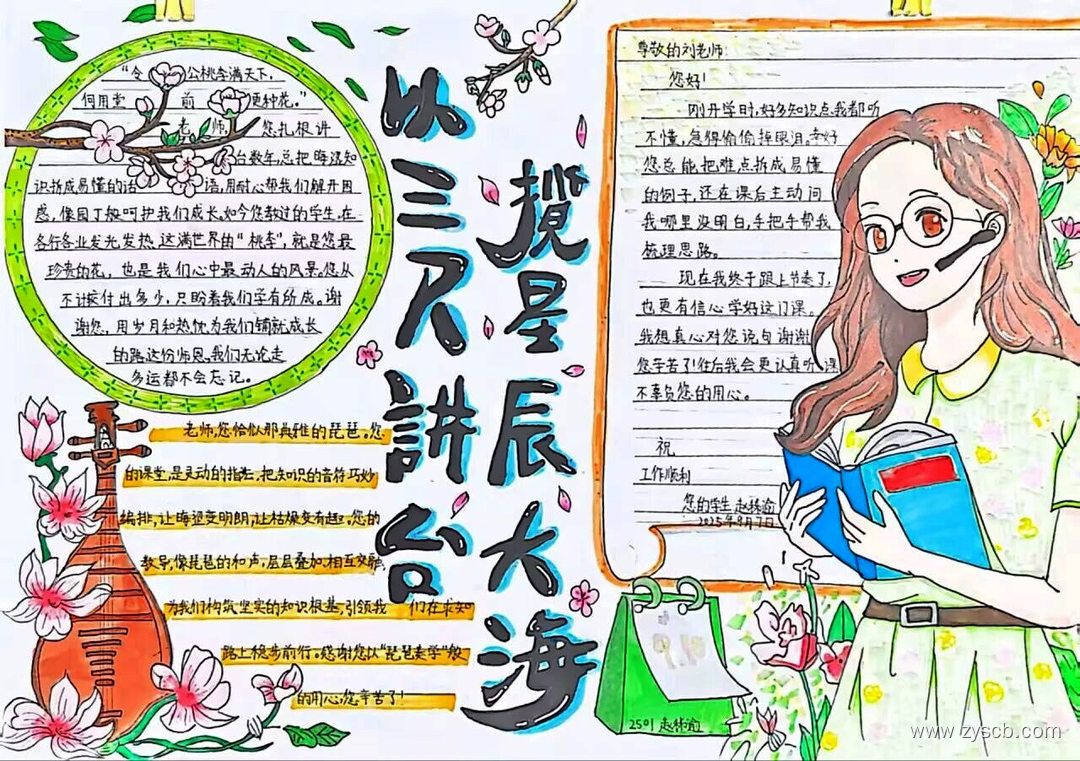 以三尺讲台
揽星辰大海
"令公桃李满天下,
何用堂前更种花。"
老师,您扎根讲
台数年,总把晦涩知
识拆成易懂的话语,用耐心帮我们解开困
惑,像园丁般呵护我们成长。如今您教过的学生,在
各行各业发光发热,这满世界的"桃李",就是您最
珍贵的花,也是我们心中最动人的风景。您从
不计较付出多少,只盼着我们学有所成。谢
谢您,用岁月和热忱为我们铺就成长
的路这份师恩,我们无论走
多远都不会忘记。
老师,您恰似那典雅的琵琶。您
的课堂,是灵动的指法,把知识的音符巧妙
编排,让晦涩变明朗,让枯燥变有趣。您的
教导,像琵琶的和声,层层叠加,相互交融,
为我们构筑坚实的知识根基,引领我们在求知
路上稳步前行。感谢您以"琵琶奏学"般
的用心,您辛苦了!
尊敬的刘老师
您好!
刚开学时,好多知识点我都听
不懂,急得偷偷掉眼泪。幸好
您总能把难点拆成易懂
的例子,还在课后主动问
我哪里没明白,手把手帮我
梳理思路。
现在我终于跟上节奏了,
也更有信心学好这门课。
我想真心对您说句谢谢
您辛苦了!往后我会更认真听课
不辜负您的用心。
祝
工作顺利
您的学生 赵林渝
2025年9月7日
2501 赵林渝
www.zyscb.com